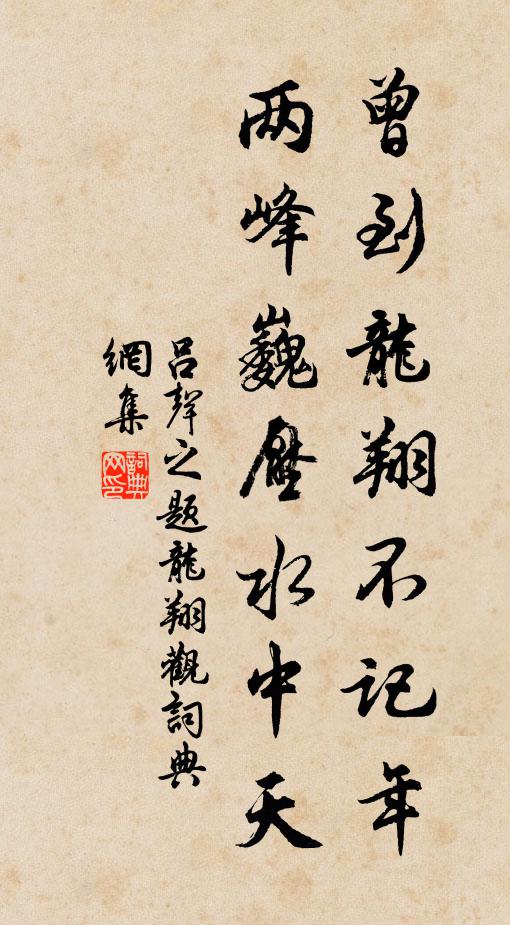 曾到龍翔不记年
两峰巍壓水中天
呂聲之题龍翔觀詞典
網集
詞典
网印